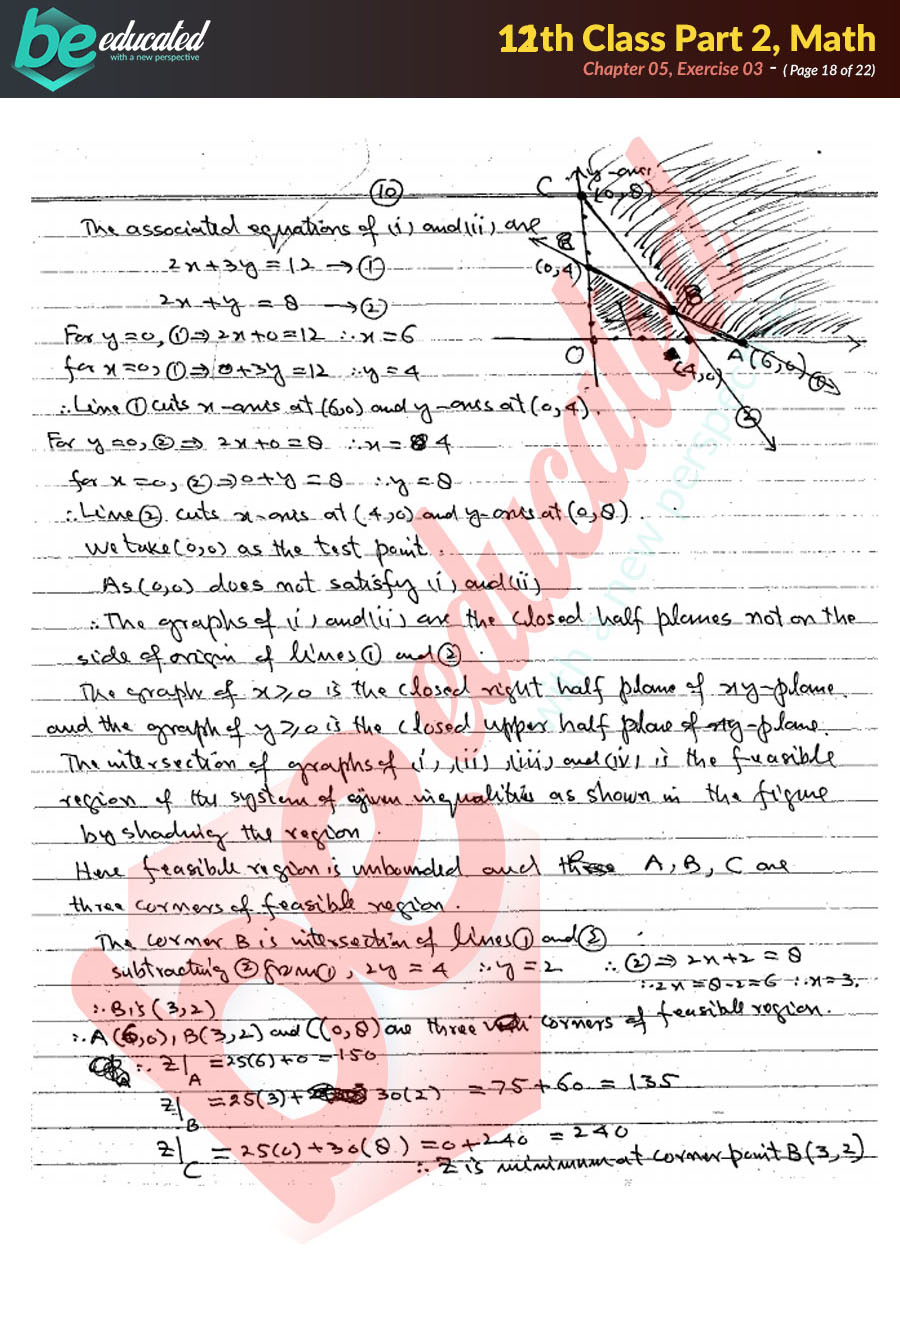 be educated
with a new perspective
12th Class Part 2, Math
Chapter 05, Exercise 03 - ( Page 18 of 22)
10
C y-axis
(0,8)
The associated equations of (i) and (ii) are
2x+3y=12 → ①
(0,4)
B
2x+y = 8 → ②
For y=0, ①⇒ 2x+0=12 ∴x=6
O
(4,0)
A(6,0)
①
for x=0, ①⇒ 0+3y=12 ∴y=4
②
∴Line ① cuts x-axis at (6,0) and y-axis at (0,4).
For y=0, ②⇒ 2x+0=8 ∴x= 4
for x=0, ②⇒0+y=8 ∴y=8
∴Line ② cuts x-axis at (4,0) and y-axis at (0,8).
We take (0,0) as the test point.
As (0,0) does not satisfy (i) and (ii)
∴The graphs of (i) and (ii) are the closed half planes not on the
side of origin of lines ① and ②.
The graph of x≥0 is the closed right half plane of xy-plane
and the graph of y≥0 is the closed upper half plane of xy-plane.
The intersection of graphs of (i), (ii), (iii) and (iv) is the feasible
region of the system of given inequalities as shown in the figure
by shading the region.
Here feasible region is unbounded and A, B, C are
three corners of feasible region.
The corner B is intersection of lines ① and ②
subtracting ② from ①, 2y=4 ∴y=2 ∴②⇒ 2x+2=8
∴2x=8-2=6 ∴x=3.
∴B is (3,2)
∴A(6,0), B(3,2) and C(0,8) are three corners of feasible region.
∴ Z|A =25(6)+0=150
Z|B =25(3)+ 30(2) =75+60=135
Z|C =25(0)+30(8)=0+240 =240
∴ Z is minimum at corner point B(3,2)
be educated
with a new perspective